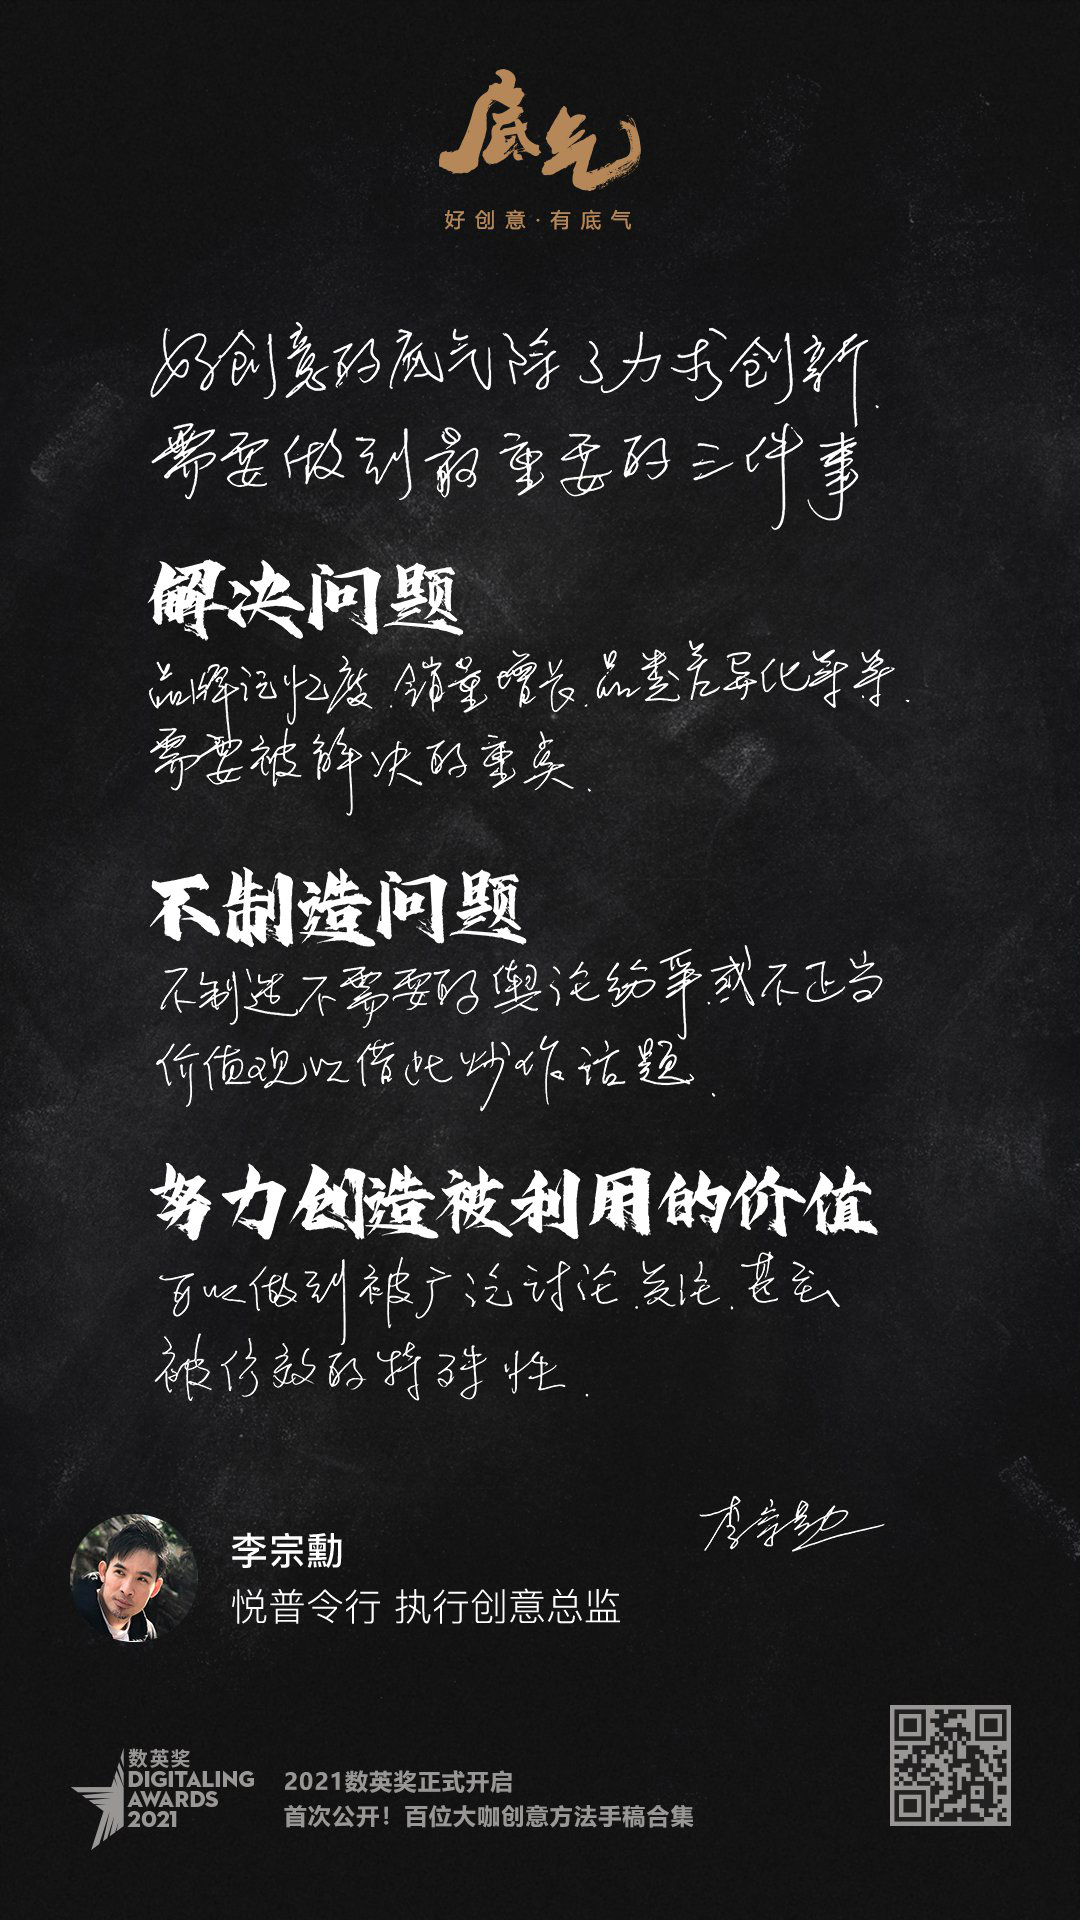 底气
好创意·有底气
好创意的底气除了力求创新.
需要做到最重要的三件事
解决问题
品牌记忆度.销量增长.品类差异化等等.
需要被解决的重点.
不制造问题
不制造不需要的舆论纷争.或不正当
价值观以借此炒作话题.
努力创造被利用的价值
可以做到被广泛讨论.关注.甚至
被仿效的特殊性.
李宗勳
李宗勳
悦普令行 执行创意总监
数英奖
DIGITALING
AWARDS
2021
2021数英奖正式开启
首次公开！百位大咖创意方法手稿合集